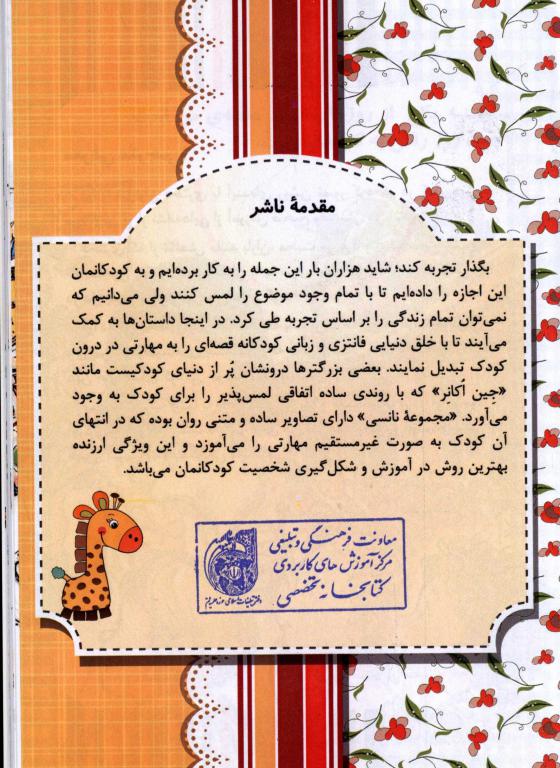 مقدمهٔ ناشر
بگذار تجربه کند؛ شاید هزاران بار این جمله را به کار برده‌ایم و به کودکانمان
این اجازه را داده‌ایم تا با تمام وجود موضوع را لمس کنند ولی می‌دانیم که
نمی‌توان تمام زندگی را بر اساس تجربه طی کرد. در اینجا داستان‌ها به کمک
می‌آیند تا با خلق دنیایی فانتزی و زبانی کودکانه قصه‌ای را به مهارتی در درون
کودک تبدیل نمایند. بعضی بزرگترها درونشان پُر از دنیای کودکیست مانند
«جین اُکانِر» که با روندی ساده اتفاقی لمس‌پذیر را برای کودک به وجود
می‌آورد. «مجموعهٔ نانسی» دارای تصاویر ساده و متنی روان بوده که در انتهای
آن کودک به صورت غیرمستقیم مهارتی را می‌آموزد و این ویژگی ارزنده
بهترین روش در آموزش و شکل‌گیری شخصیت کودکانمان می‌باشد.
معاونت فرهنگی و تبلیغی
مرکز آموزش های کاربردی
کتابخانه تخصصی
دفتر تبلیغات اسلامی حوزه علمیه قم